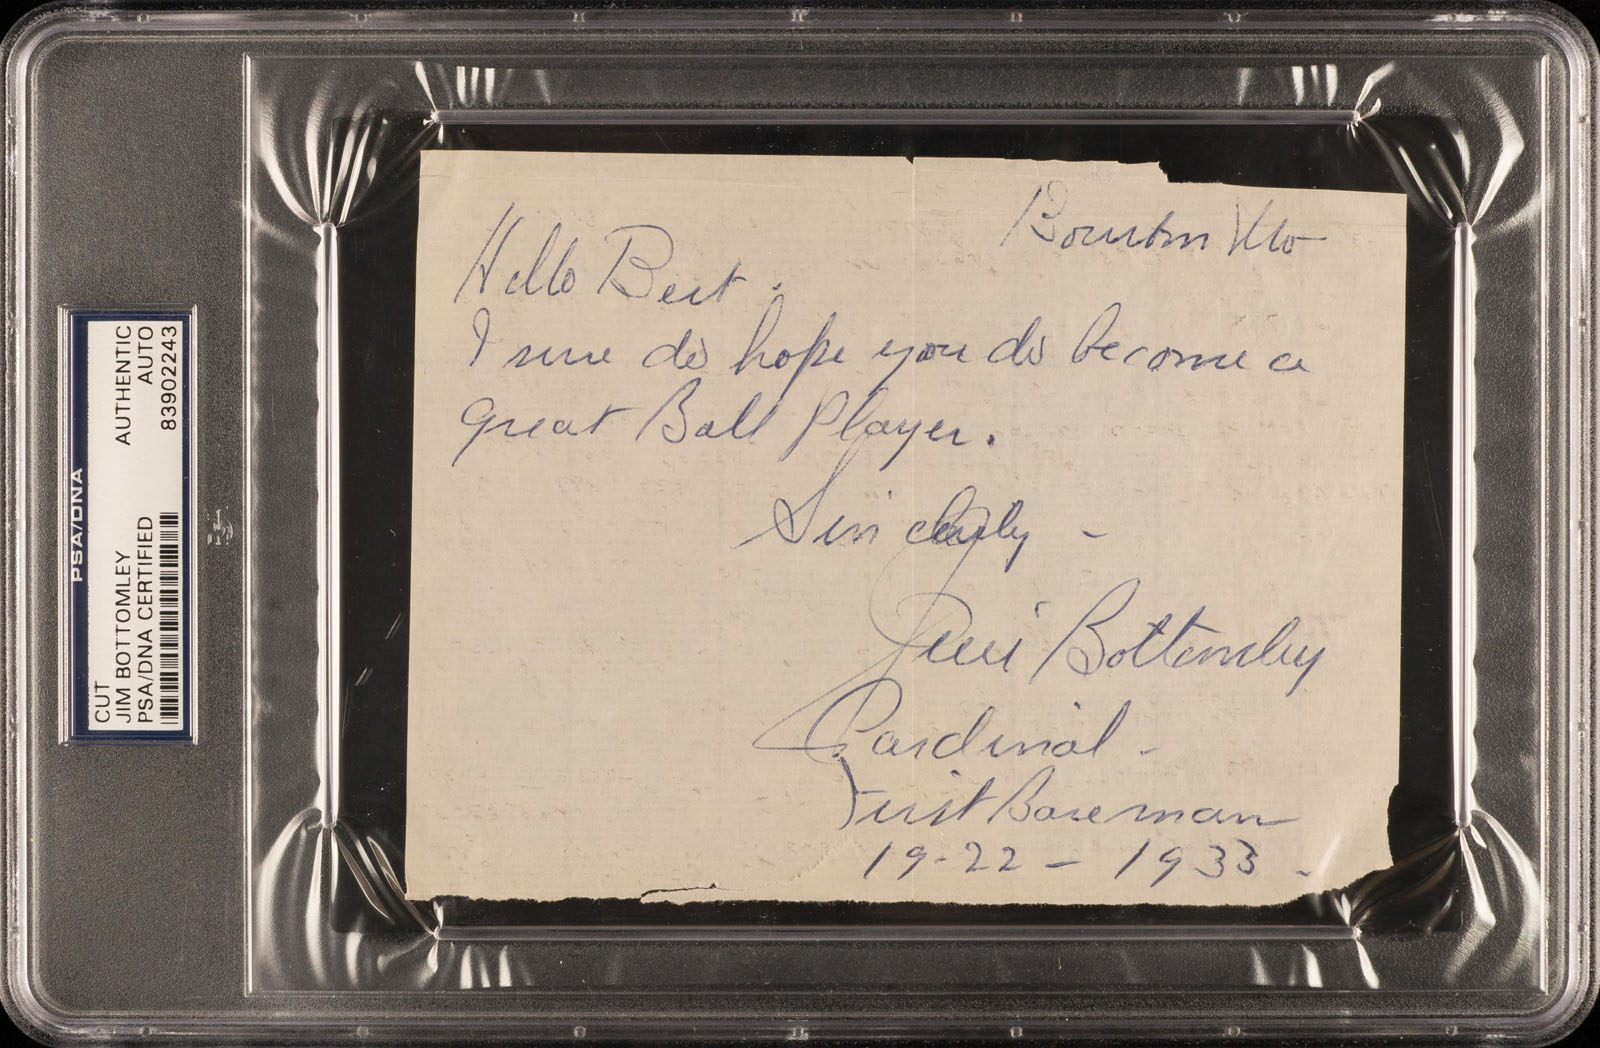 PSA/DNA
CUT
JIM BOTTOMLEY
PSA/DNA CERTIFIED
AUTHENTIC
AUTO
83902243
Bourbon Mo
Hello Bert.
I sure do hope you do become a
great Ball Player.
Sincerly -
Jim Bottomley
Cardinal -
First Baseman
19-22 - 1933.